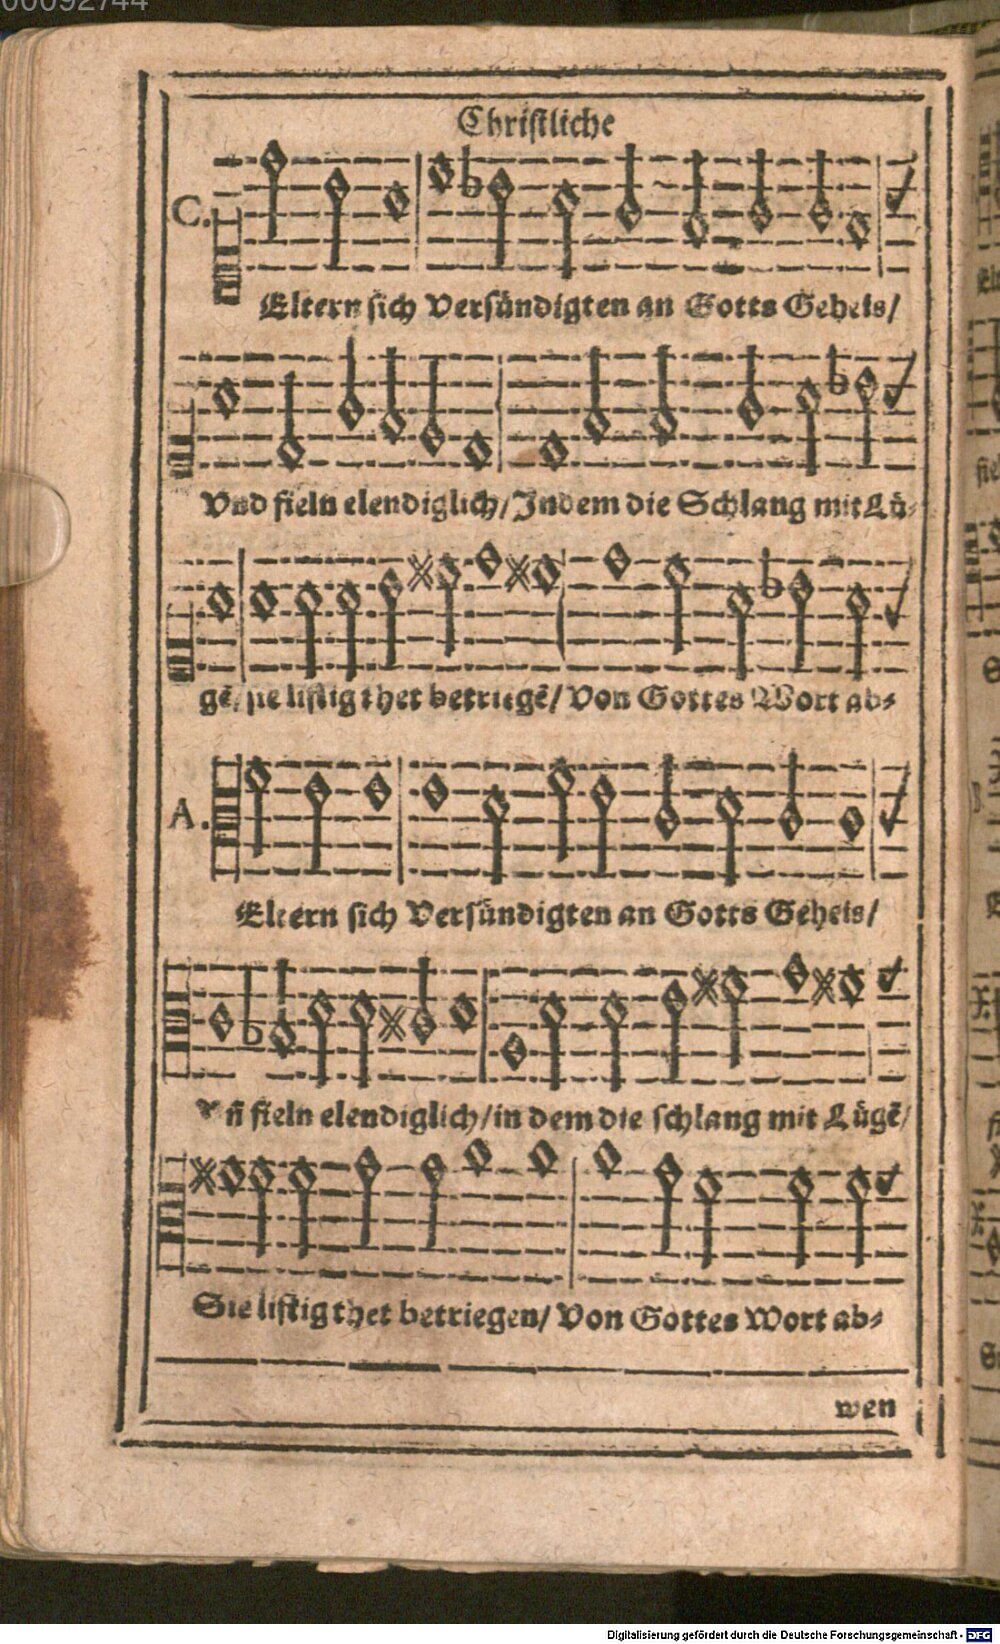 00092744
Chriſtliche
C.
Eltern ſich Verſündigten an Gotts Geheis/
Vnd fieln elendiglich/ Indem die Schlang mit Lü-
gẽ/ ſie liſtig thet betriegẽ/ Von Gottes Wort ab-
A.
Eltern ſich Verſündigten an Gotts Geheis/
Vñ fieln elendiglich/ in dem die ſchlang mit Lügẽ/
Sie liſtig thet betriegen/ Von Gottes Wort ab-
wen
Digitalisierung gefördert durch die Deutsche Forschungsgemeinschaft - DFG